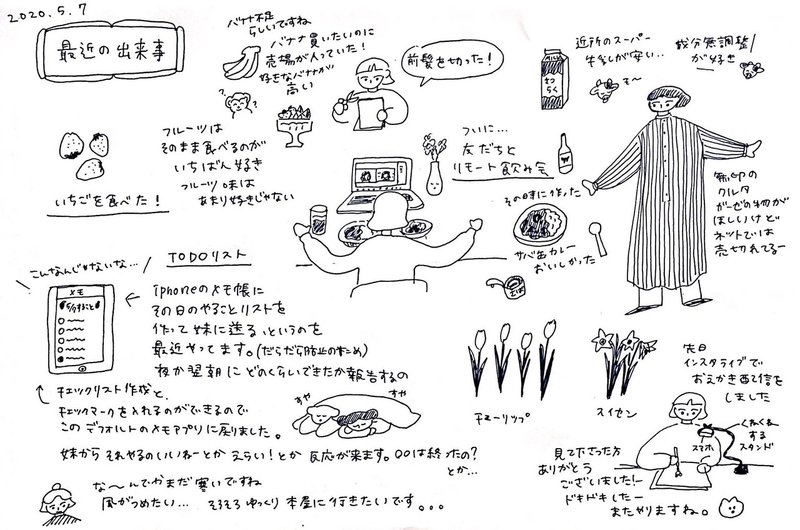 2020.5.7
最近の出来事
バナナ不足
らしいですね
バナナ買いたいのに
売場が入っていた!
好きなバナナが
高い
?
?
?
前髪を切った!
近所のスーパー
牛乳が安い…
も〜
成分無調整
が好き
MILK
さつ
らく
いちごを食べた!
フルーツは
そのまま食べるのが
いちばん好き
フルーツ味は
あまり好きじゃない
ついに…
友だちと
リモート飲み会
その時に作った
サバ缶カレー
おいしかった
さば
無印の
クルタ
ガーゼの物が
ほしいけど
ネットでは
売切れてるー
こんなんじゃないな…
TODOリスト
メモ
5/7すること
iphoneのメモ帳に
その日のやることリストを
作って妹に送る、というのを
最近やってます。(だらだら防止のために)
夜か翌朝にどのくらいできたか報告するの
チェックリスト作成と、
チェックマークを入れるのができるので
このデフォルトのメモアプリに戻りました。
すや
すや
妹からそれやるのいいねーとかえらい!とか反応が来ます。〇〇は終ったの?
とか…
チューリップ
スイセン
先日
インスタライブで
おえかき配信を
しました
くねくね
する
スタンド
スマホ
見て下さった方
ありがとう
ございました!
ドキドキしたー
またやりますね。
な〜んでかまだ寒いですね
風がつめたい… そろそろゆっくり本屋に行きたいです。。。